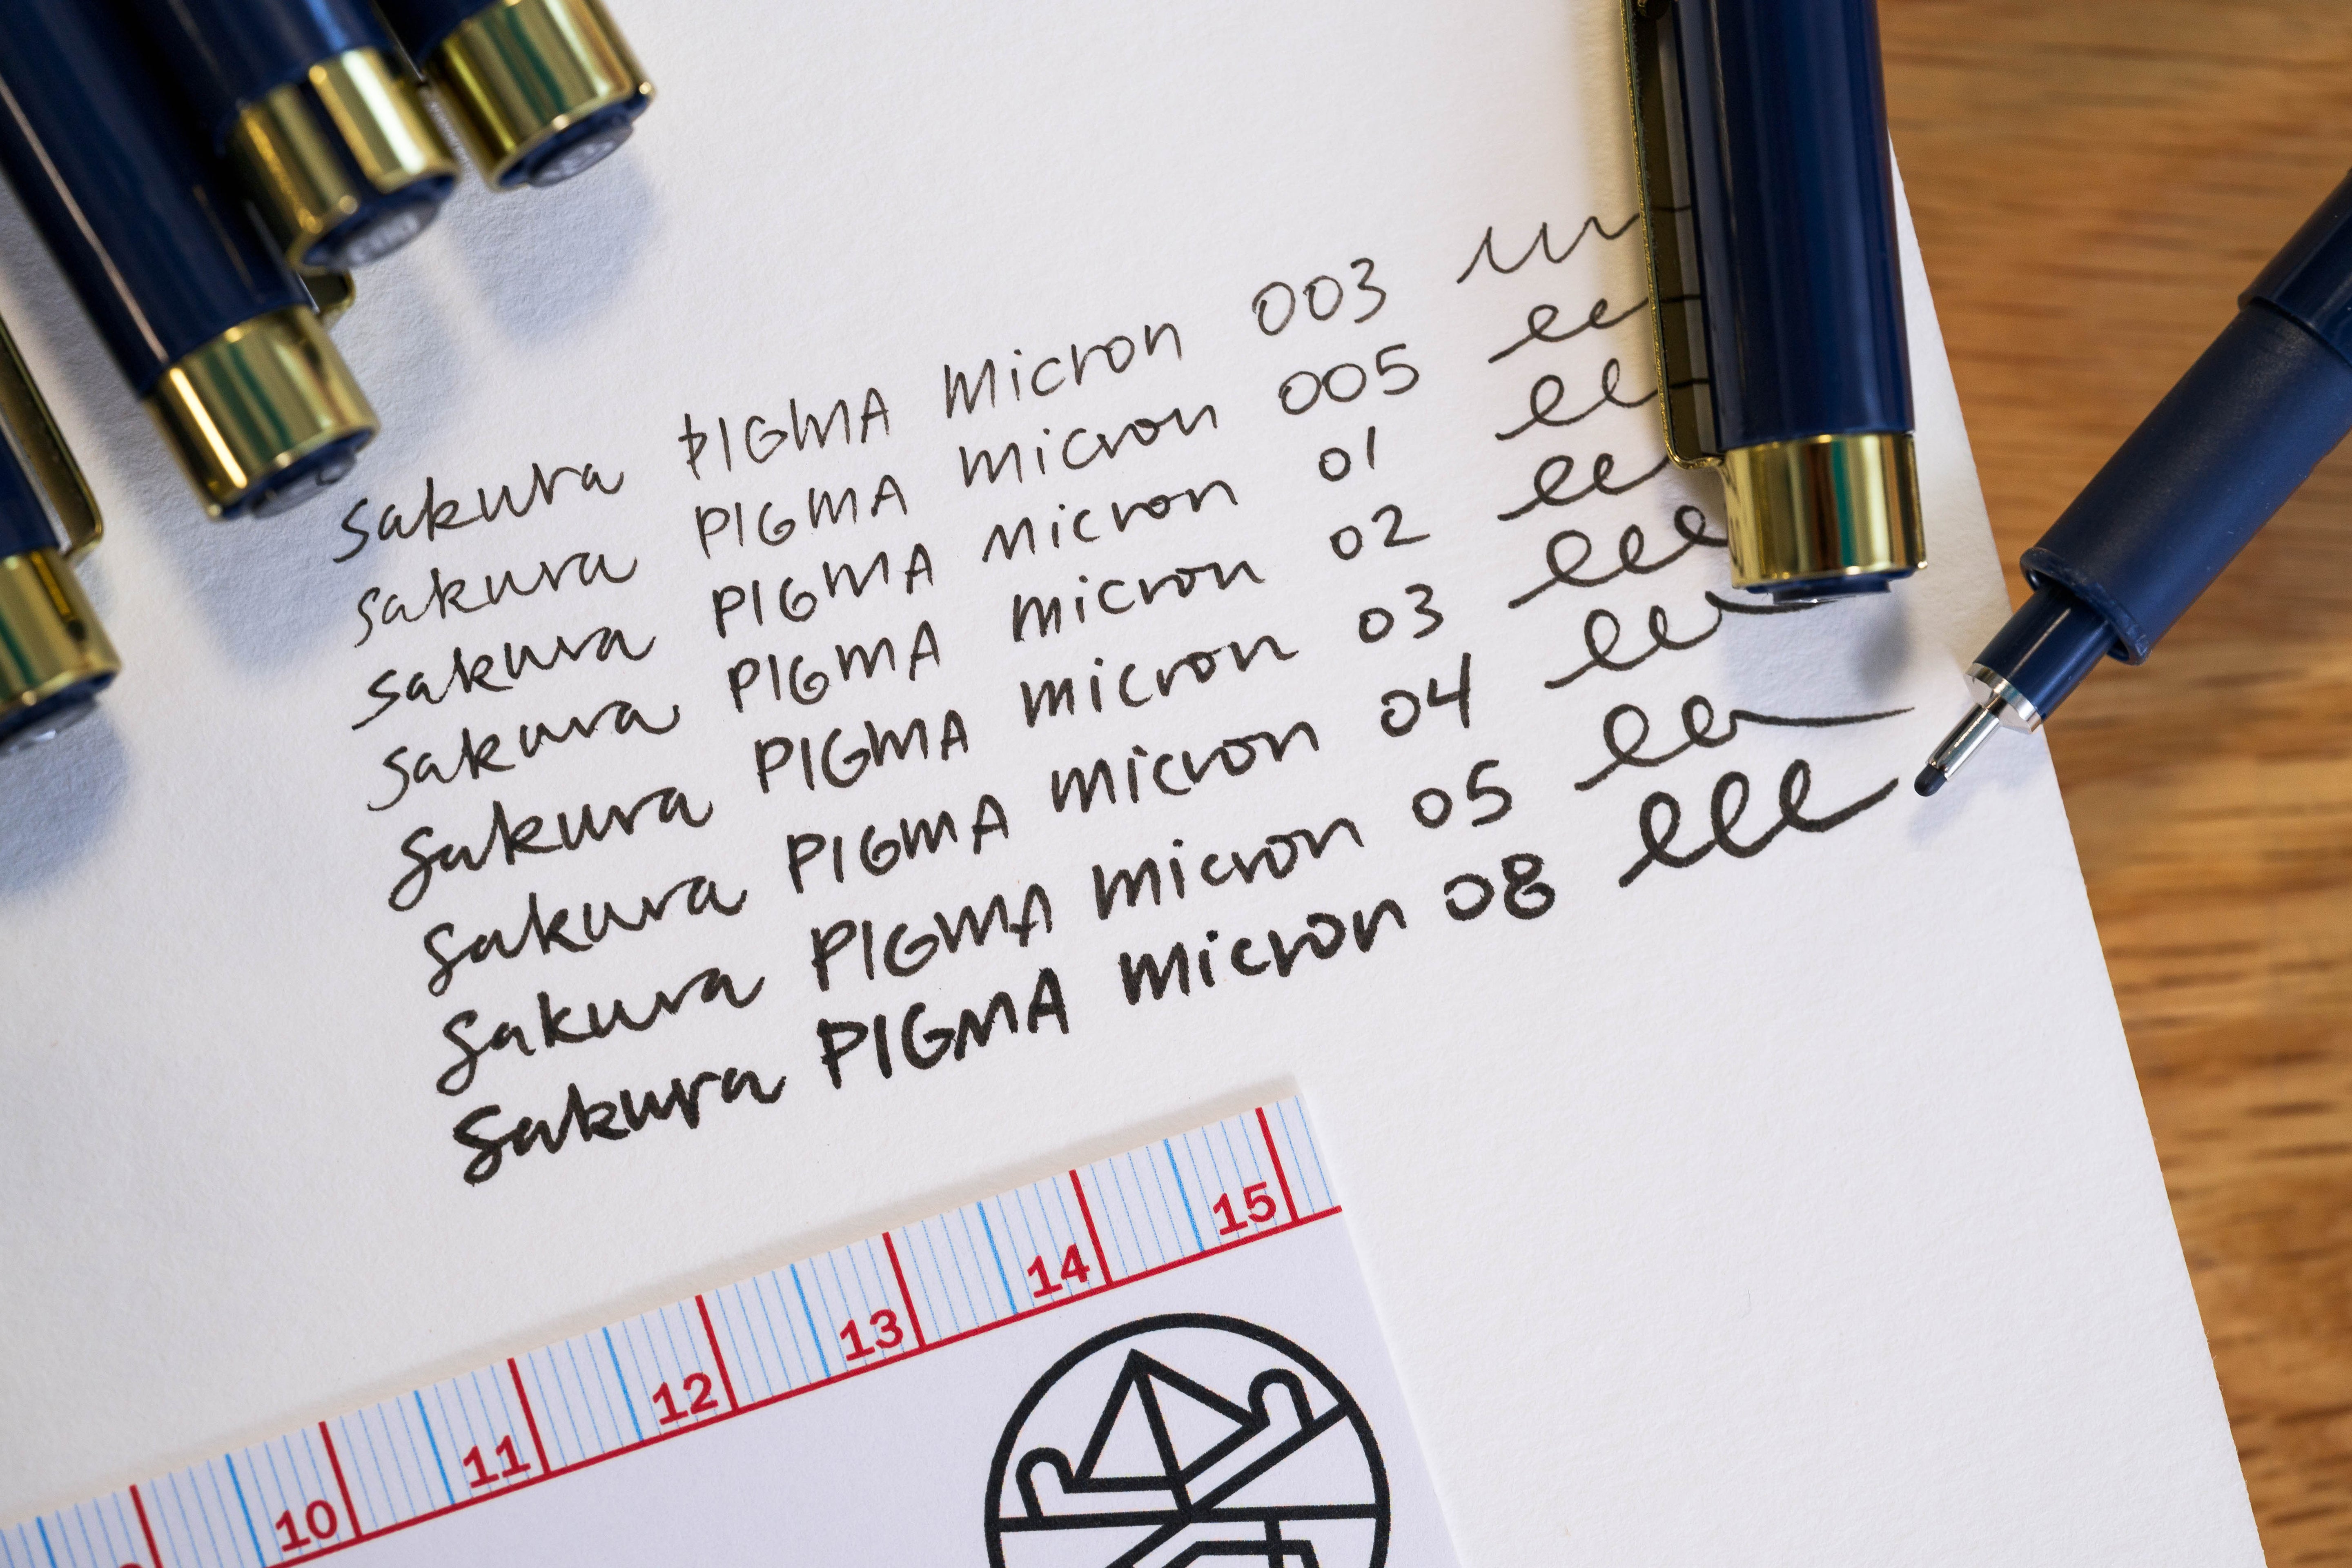 Sakura PIGMA Micron 003
Sakura PIGMA Micron 005
Sakura PIGMA Micron 01
Sakura PIGMA Micron 02
Sakura PIGMA Micron 03
Sakura PIGMA Micron 04
Sakura PIGMA Micron 05
Sakura PIGMA Micron 08
10 11 12 13 14 15